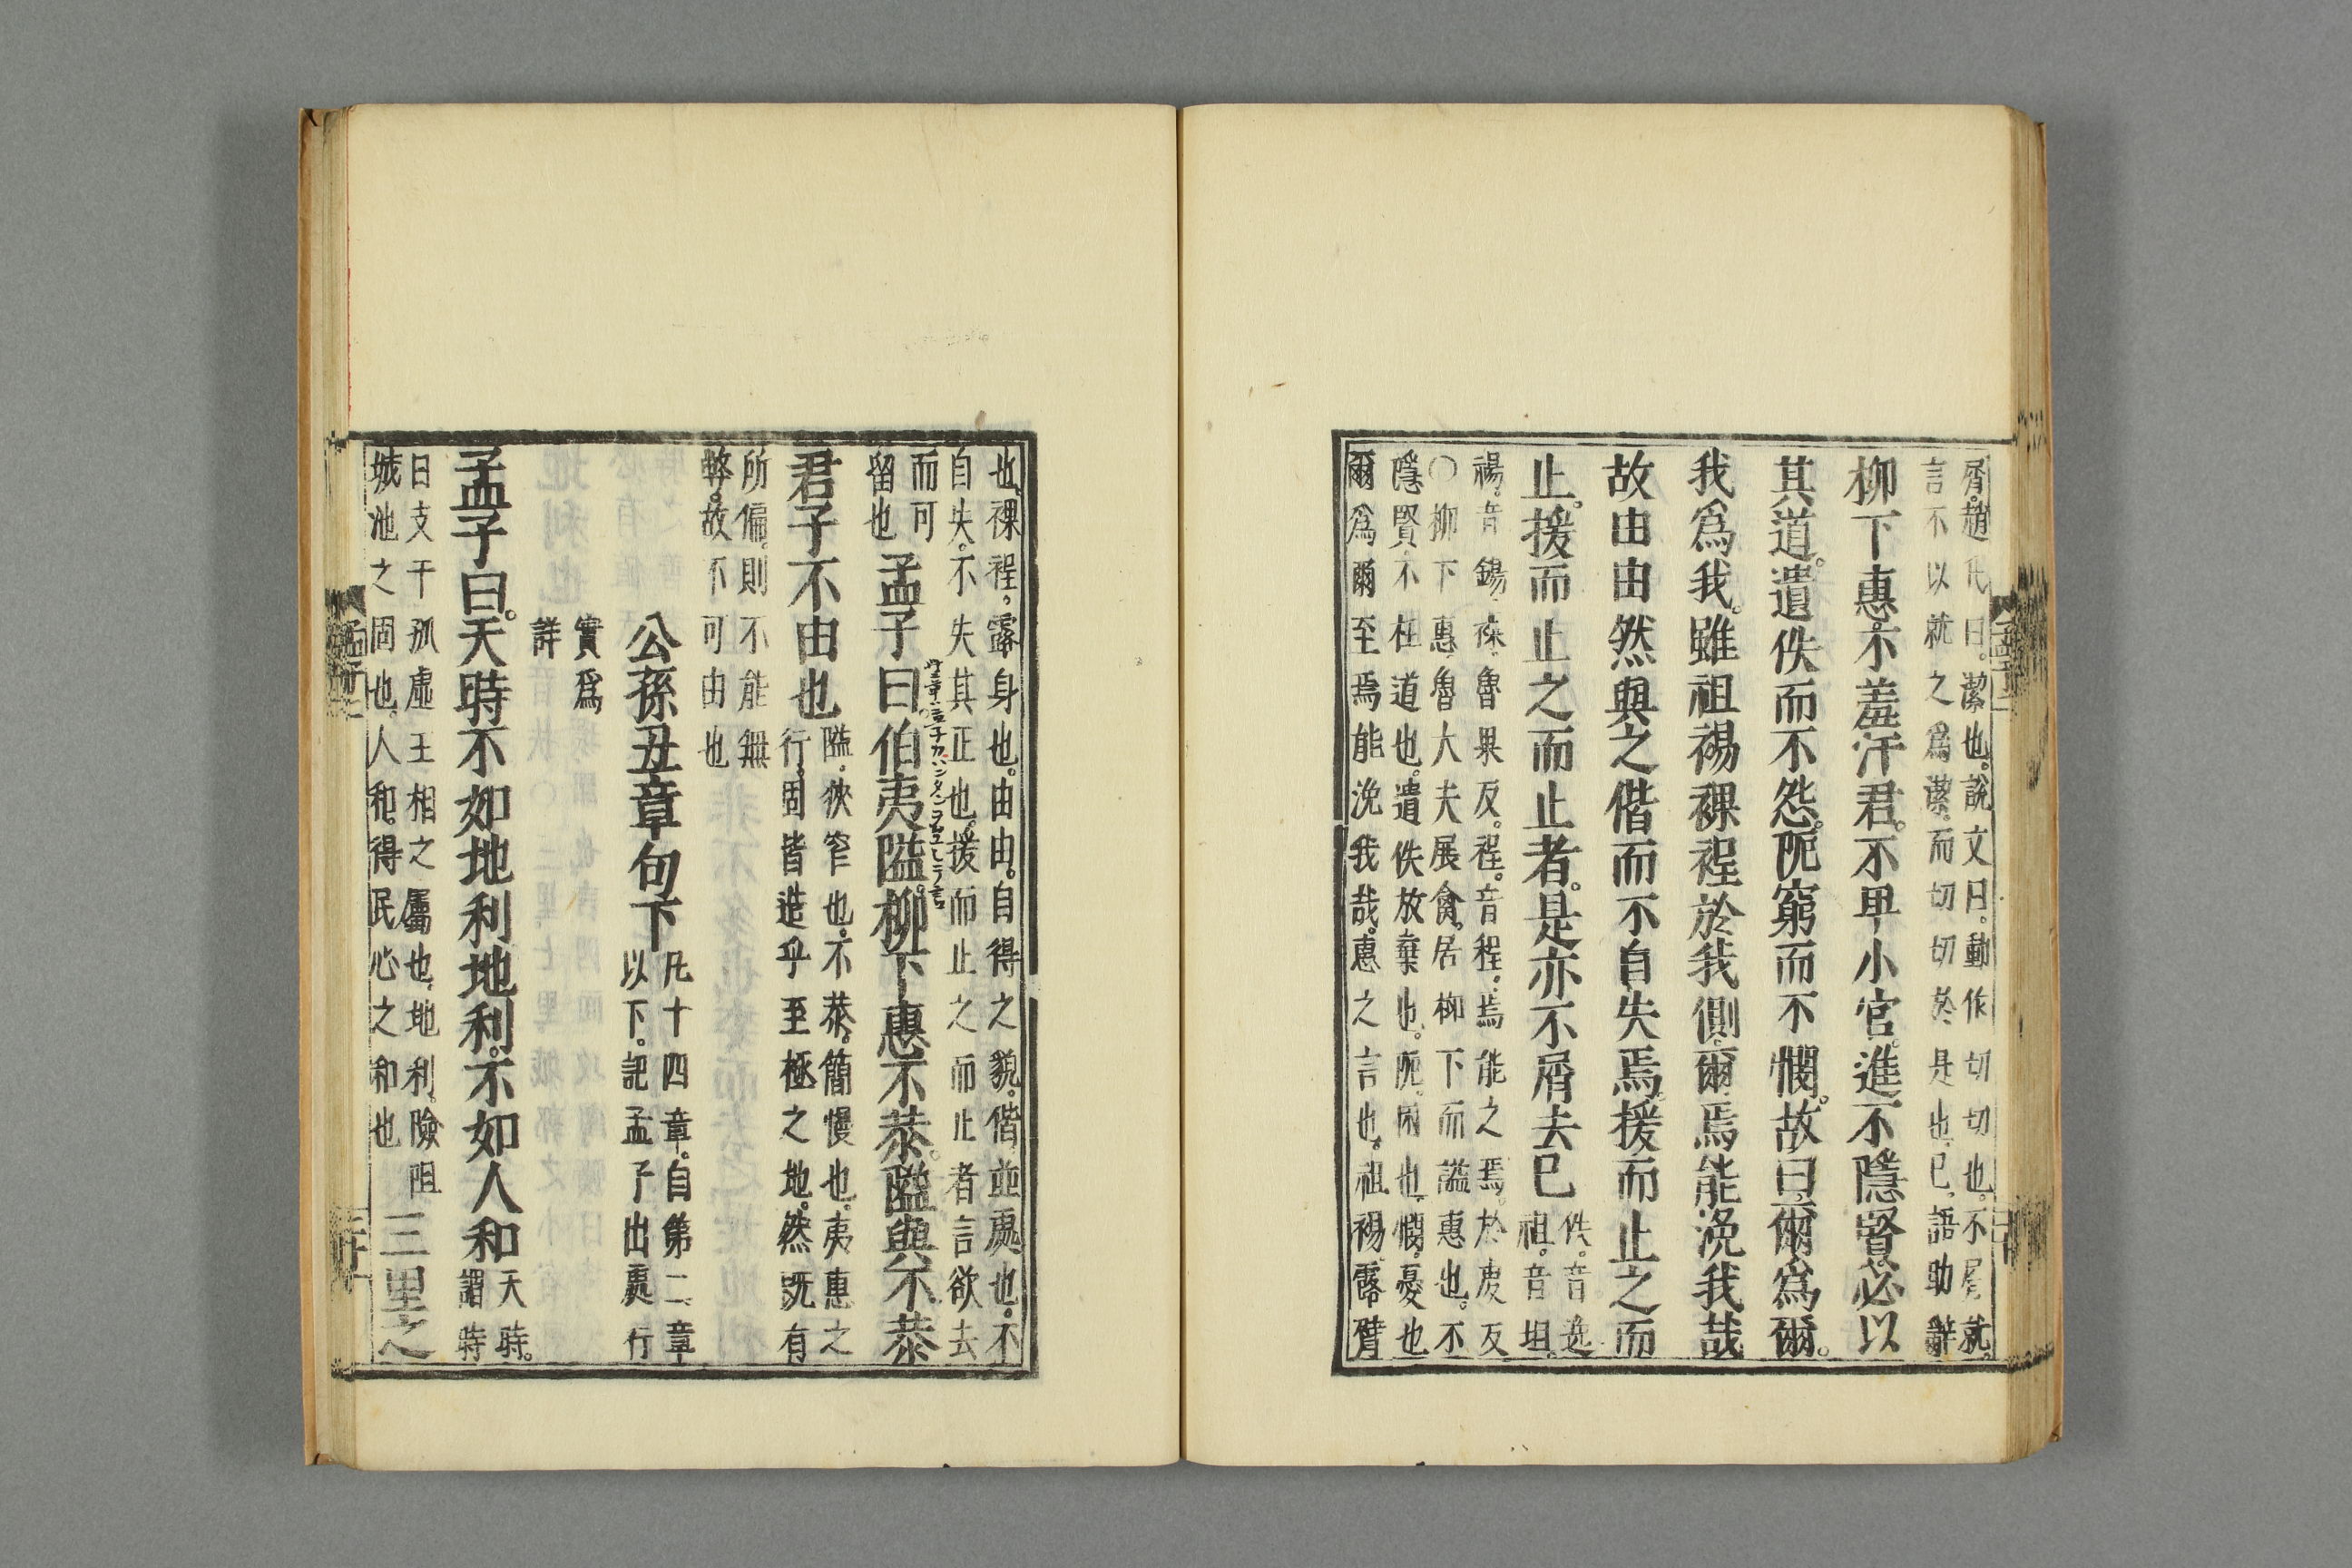 屑。趙氏曰。潔也。說文曰。動作切切也。不屑就。
言不以就之爲潔。而切切於是也。已。語助辭
柳下惠。不羞汙君。不卑小官。進不隱賢。必以
其道。遺佚而不怨。阨窮而不憫。故曰。爾爲爾。
我爲我。雖袒裼裸裎於我側。爾焉能浼我哉
故由由然與之偕而不自失焉。援而止之而
止。援而止之而止者。是亦不屑去已
佚。音逸
袒。音坦。
裼。音錫。裸。魯果反。裎。音程。焉能之焉。於虔反
○柳下惠。魯大夫展禽。居柳下而謚惠也。不
隱賢。不枉道也。遺佚。放棄也。阨。困也。憫。憂也
爾爲爾至焉能浼我哉。惠之言也。袒裼。露臂
也。裸裎。露身也。由由。自得之貌。偕。並處也。不
自失。不失其正也。援而止之而止者。言欲去
而可
留也
孟子曰。伯夷隘。柳下惠不恭。隘與不恭
君子不由也
隘。狹窄也。不恭。簡慢也。夷惠之
行。固皆造乎至極之地。然既有
所偏。則不能無
弊。故不可由也
公孫丑章句下
凡十四章。自第二章
以下。記孟子出處行
實爲
詳
孟子曰。天時不如地利。地利。不如人和
天時。
謂時
日支干孤虛王相之屬也。地利。險阻
城池之固也。人和。得民心之和也
三里之